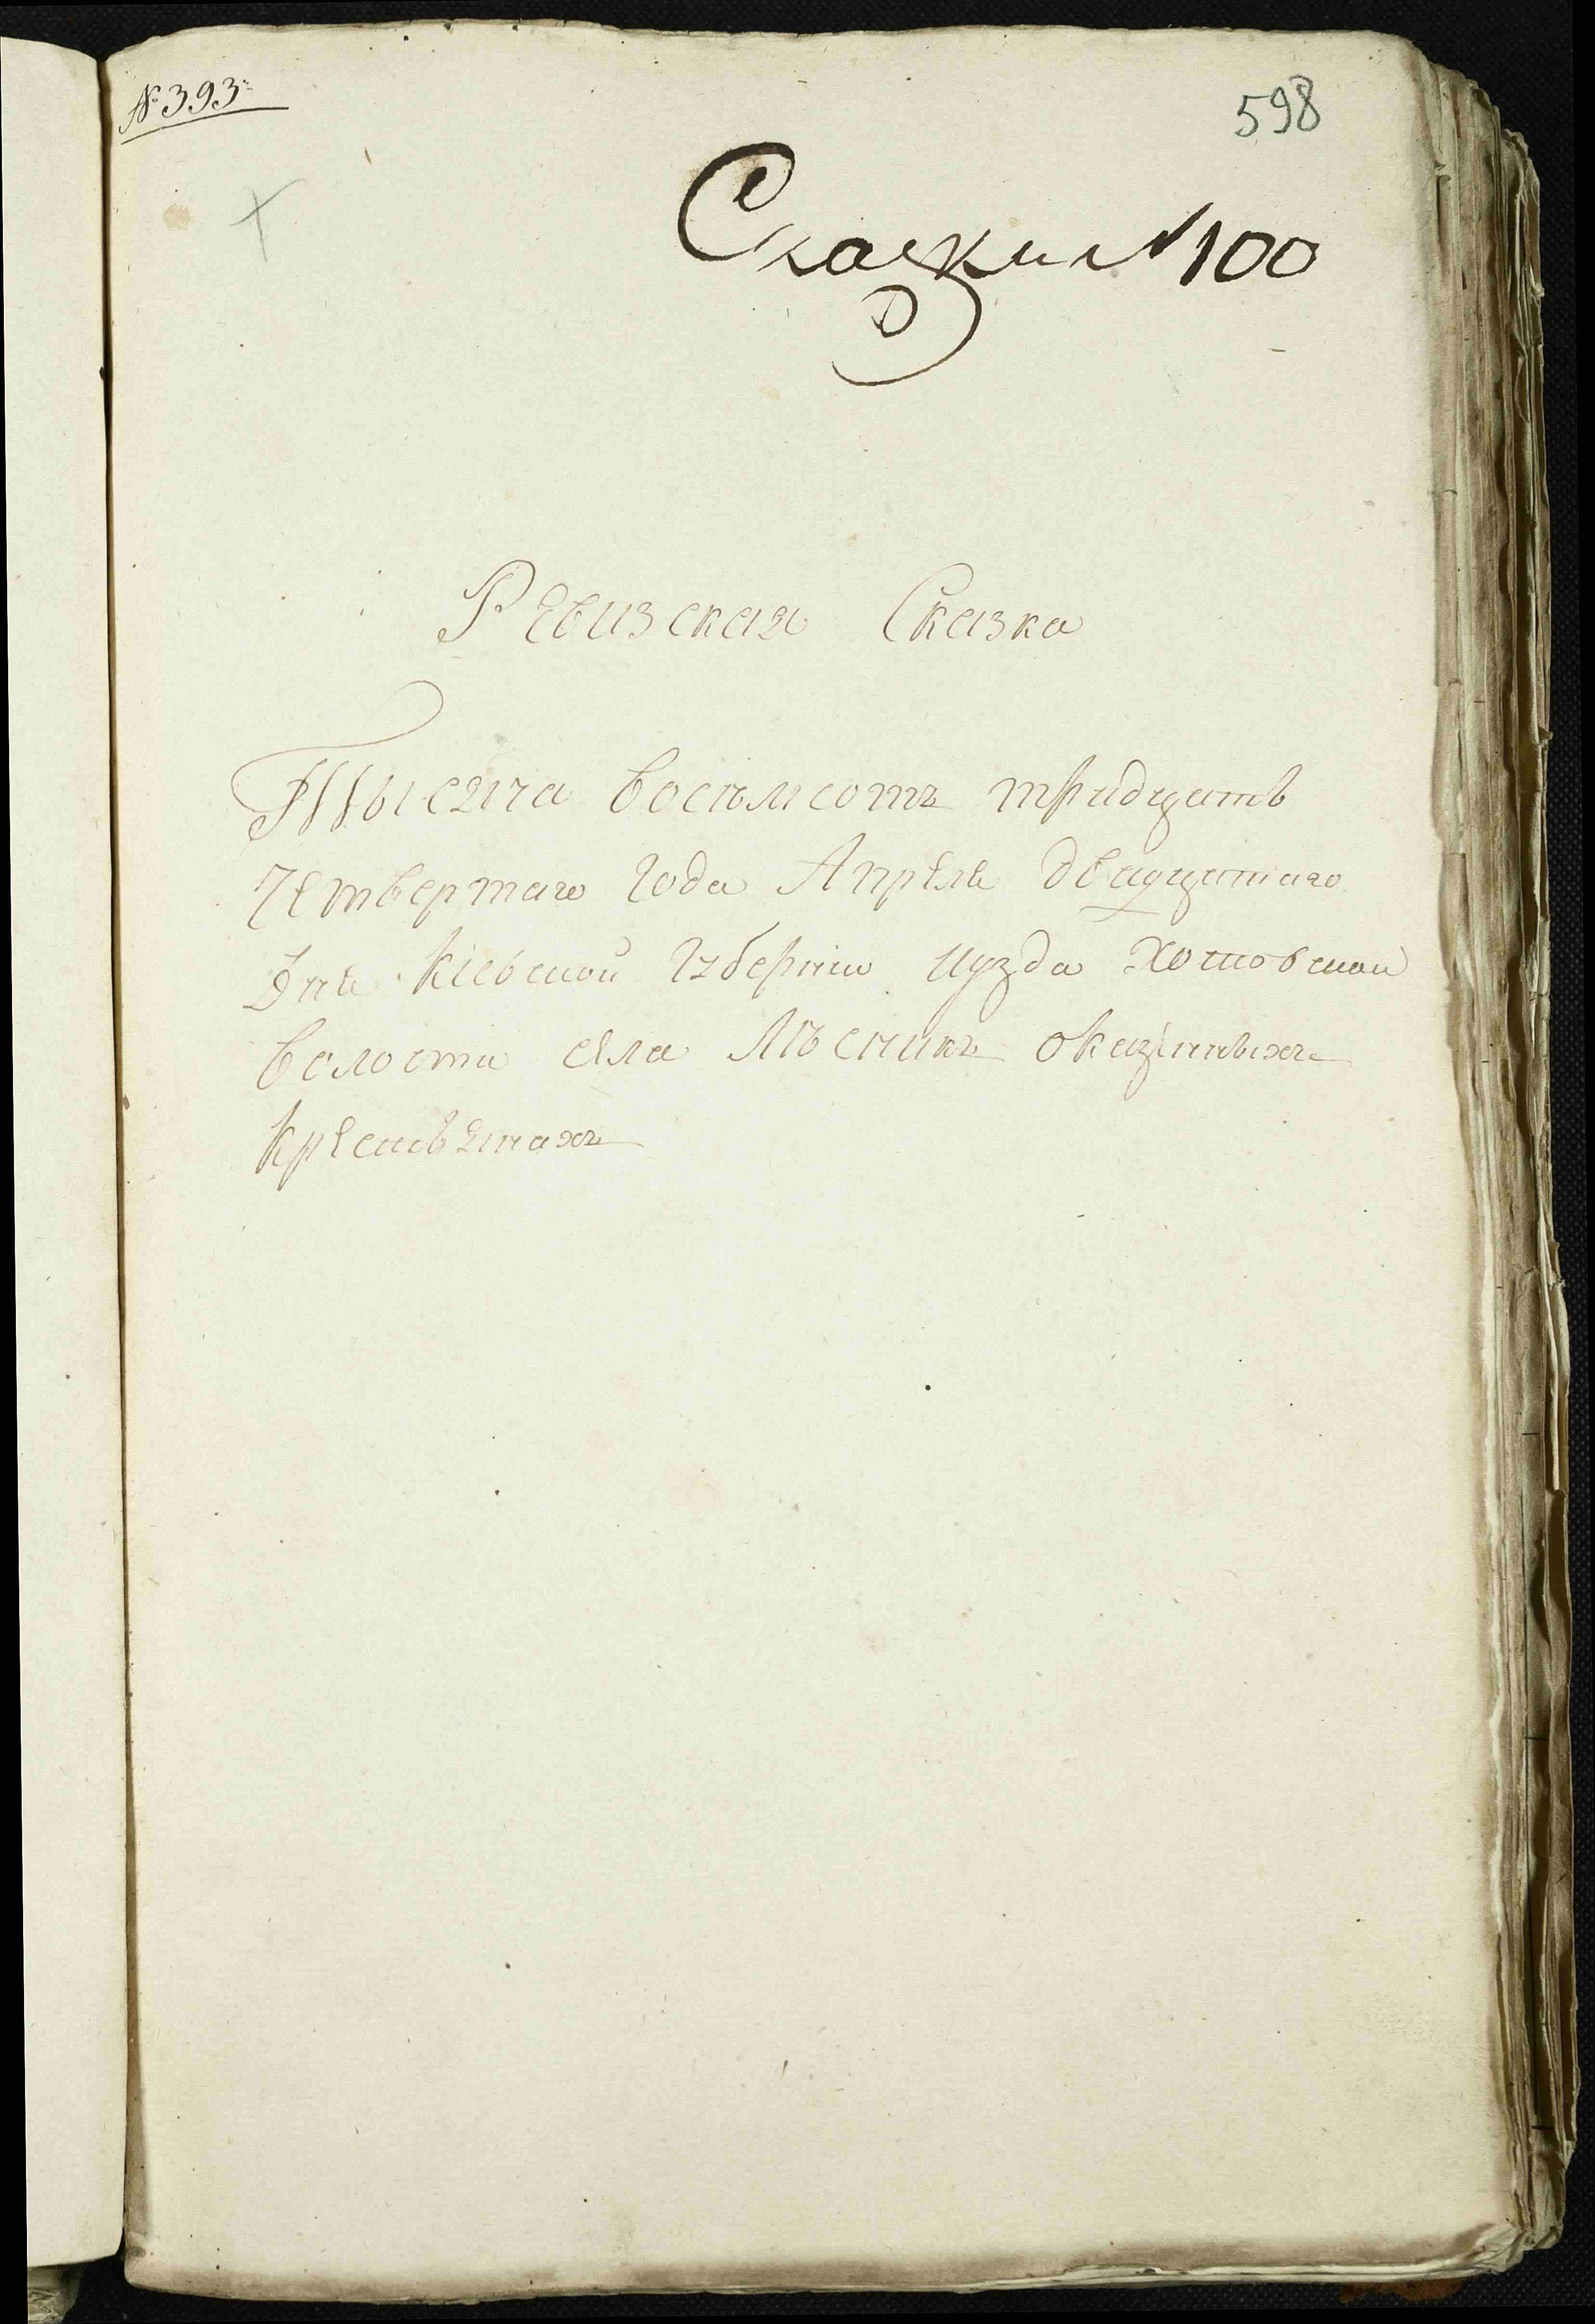 № 393
598
Сказки № 100
Ревизская Сказка
Тысяча восъмсотъ тридцать
Четвертаго Года Апреля двадцатаго
Дня Кіевской Губерніи Иуэзда Хотовской
волости села Лѣсникъ оказенныхъ
Крестьянахъ